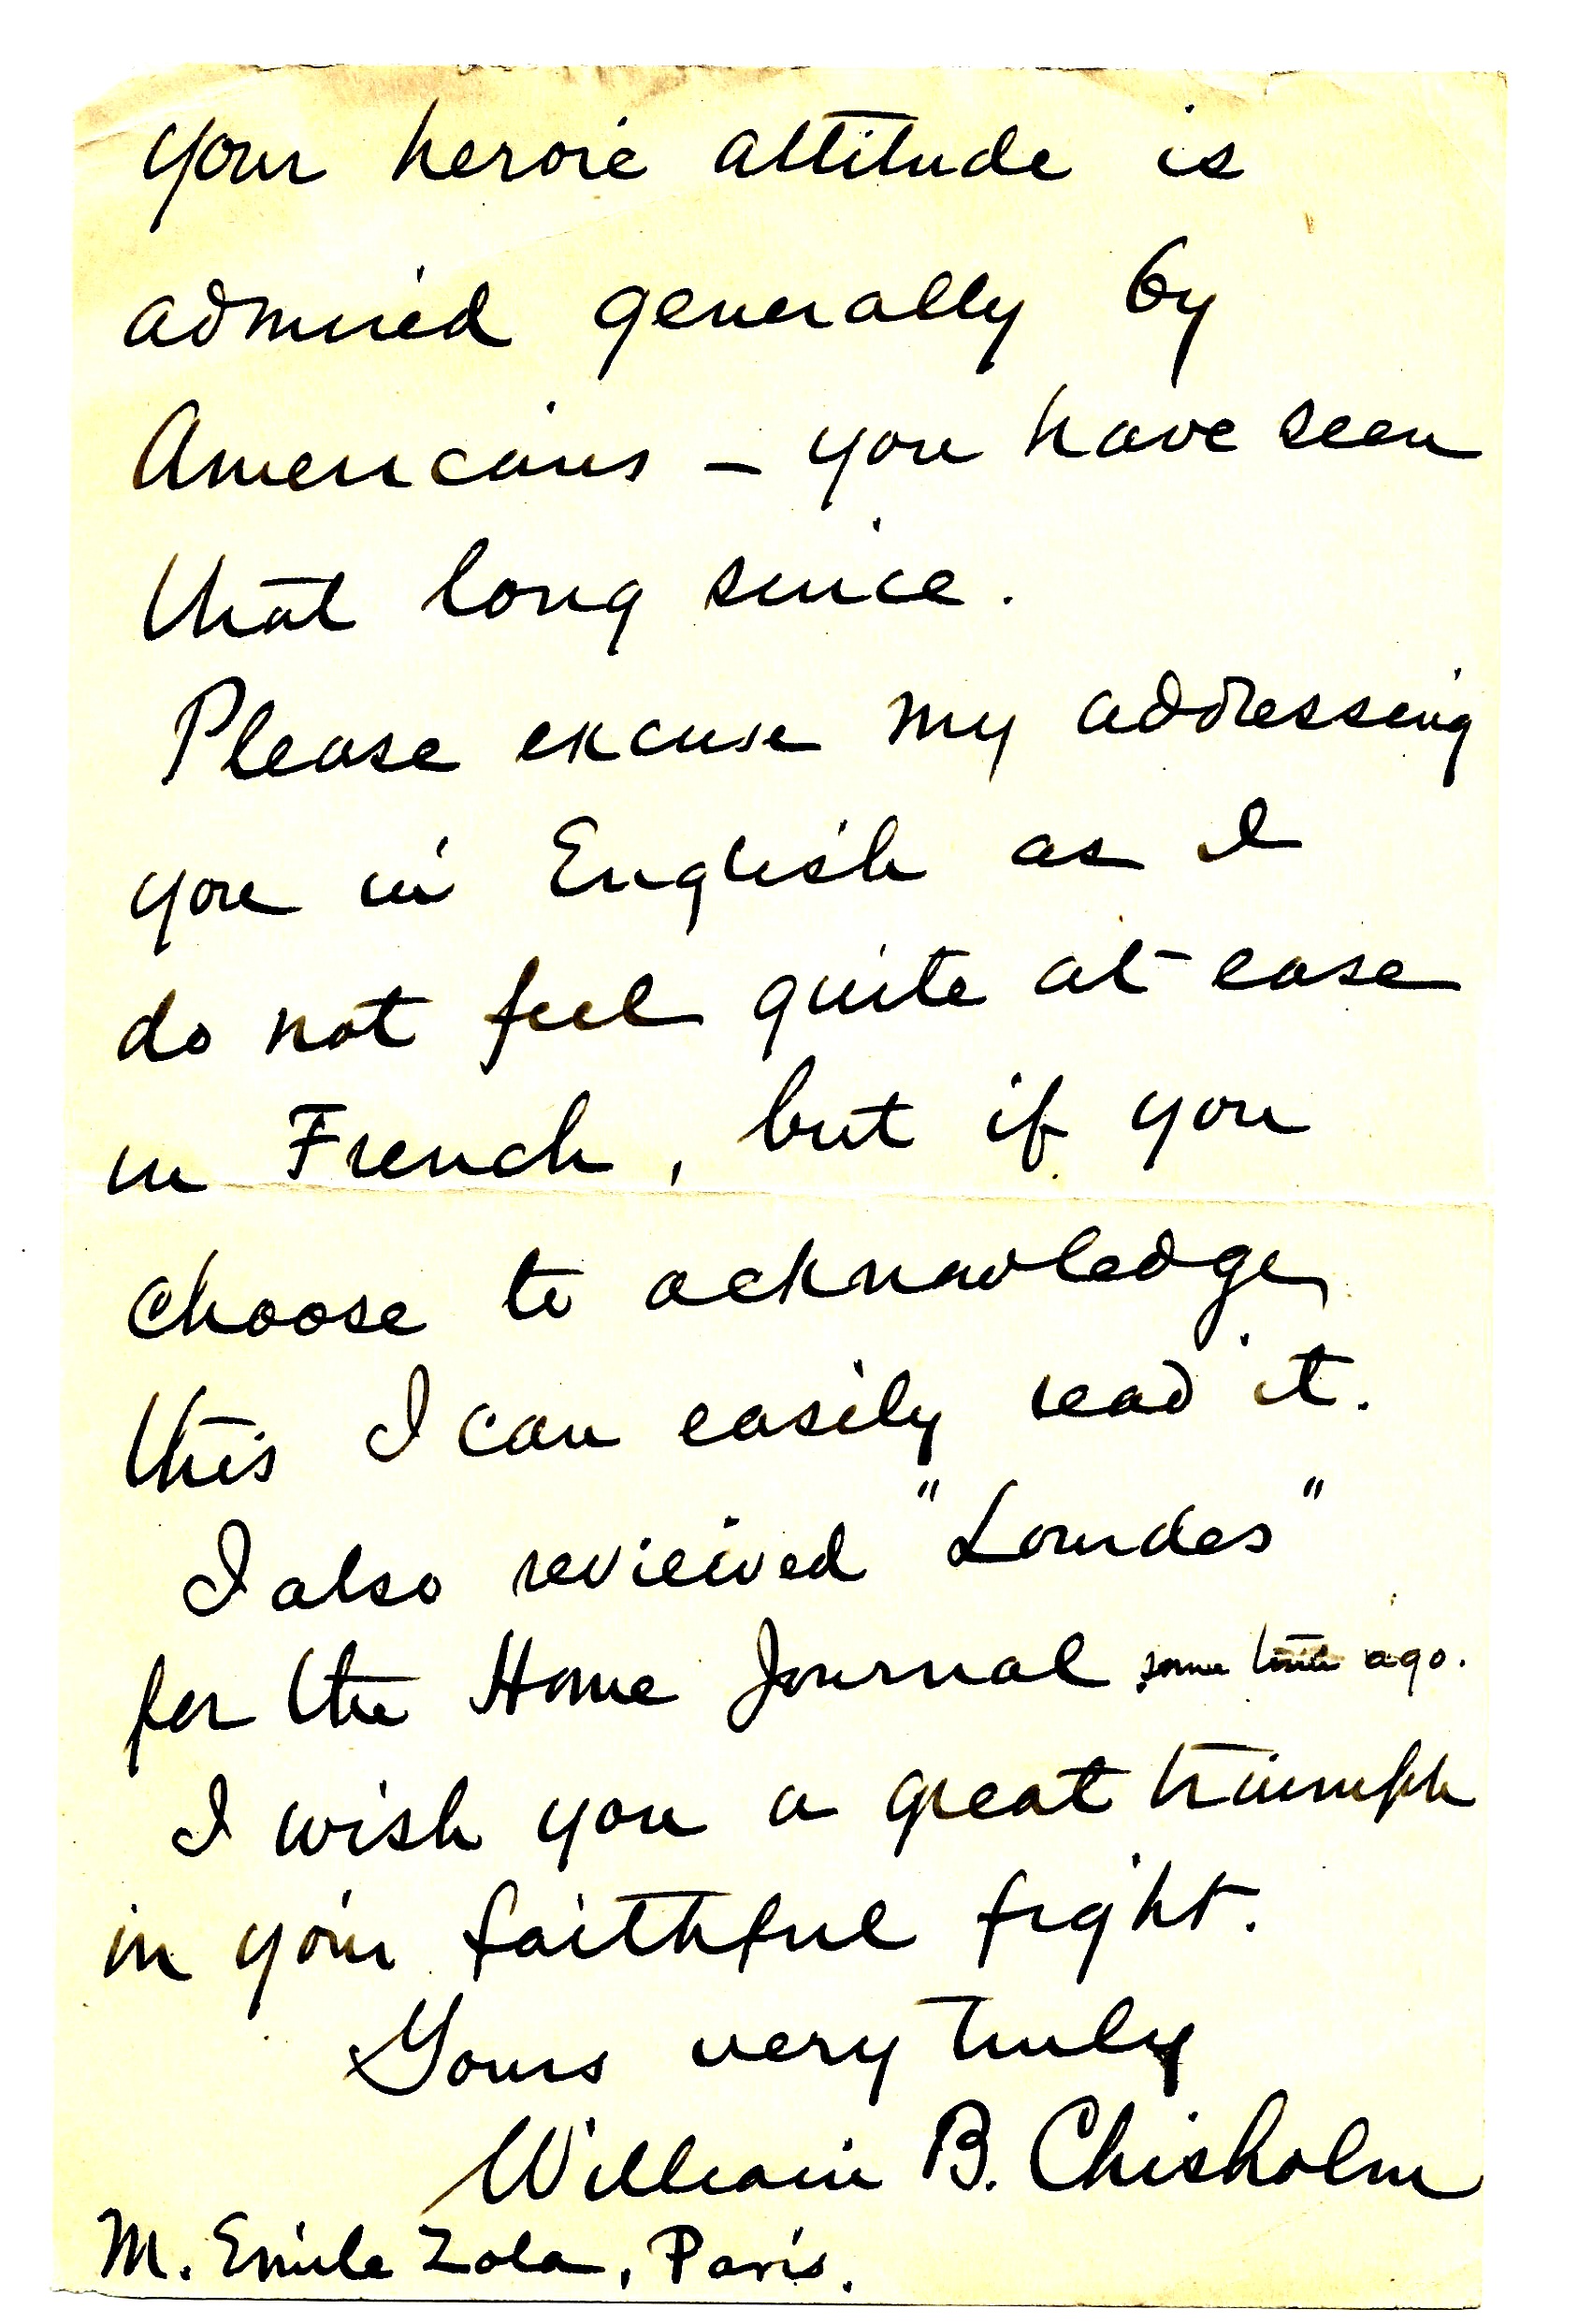 your heroic attitude is
admired generally by
Americans – you have seen
that long since.
Please excuse my addressing
you in English as I
do not feel quite at ease
in French, but if you
choose to acknowledge
this I can easily read it.
I also reviewed "Lourdes"
for the Home Journal some time ago.
I wish you a great triumph
in your faithful fight.
Yours very truly
William B. Chisholm
M. Emile Zola, Paris.